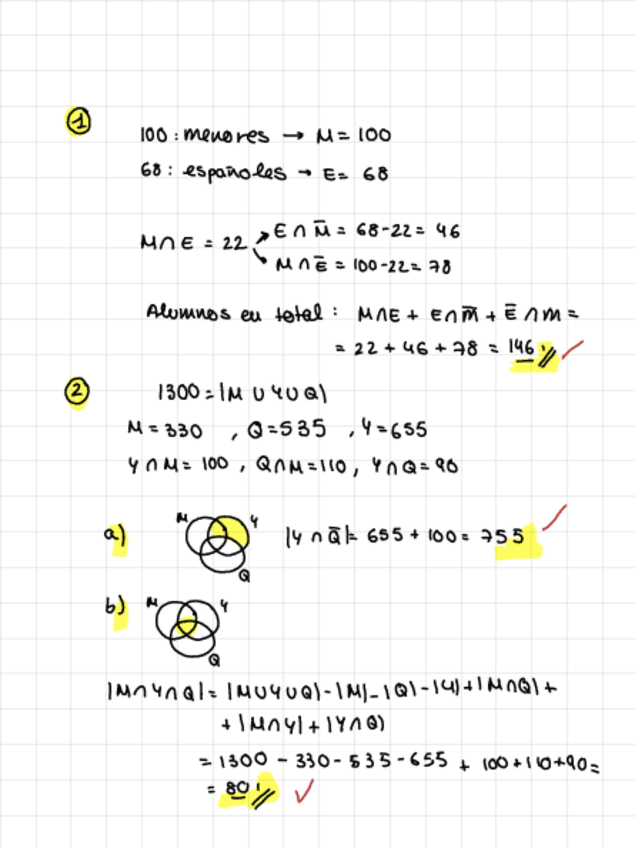 1
100 : menores → M = 100
68 : españoles → E = 68
M ∩ E = 22
E ∩ M̅ = 68 - 22 = 46
M ∩ E̅ = 100 - 22 = 78
Alumnos en total : M ∩ E + E ∩ M̅ + E̅ ∩ M =
= 22 + 46 + 78 = 146
2
1300 = |M ∪ Y ∪ Q|
M = 330 , Q = 535 , Y = 655
Y ∩ M = 100 , Q ∩ M = 110 , Y ∩ Q = 90
a)
M Y Q
|Y ∩ Q̅| = 655 + 100 = 755
b)
M Y Q
|M ∩ Y ∩ Q| = |M ∪ Y ∪ Q| - |M| - |Q| - |Y| + |M ∩ Q| +
+ |M ∩ Y| + |Y ∩ Q|
= 1300 - 330 - 535 - 655 + 100 + 110 + 90 =
= 80